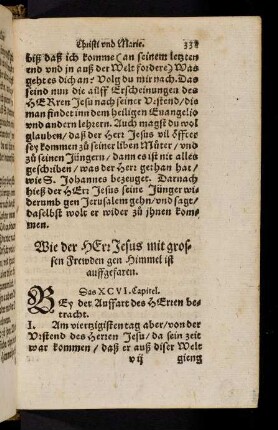 Christi vnd Marie. 331
biß daß ich komme (an seinem letzten
end vnd in auß der Welt fordere) Was
geht es dich an: Volg du mir nach. Das
seind nun die alle Erscheinungen des
HERren Jesu nach seiner Vrstend / die
man findet inn dem heiligen Euangelio
vnd andern lehrern. Auch magst du wol
glauben / daß der Herr Jesus vil öffter
sey kommen zů seiner liben Můter / vnd
zů seinen Jüngern / dann es ist nit alles
geschriben / was der Herr gethan hat /
wie S. Johannes bezeuget. Darnach
hieß der HErr Jesus seine Jünger wi-
derumb gen Jerusalem gehn / vnd sagt /
daselbst wolt er wider zů jhnen kom-
men.
Wie der HErr Jesus mit gros-
sen Frewden gen Himmel ist
auffgefaren.
Das XCVI. Capitel.
BEy der Auffart des HErren be-
tracht.
I. Am viertzigisten tag aber / von der
Vrstend des Herren Jesu / da sein zeit
war kommen / daß er auß diser Welt
vij gieng